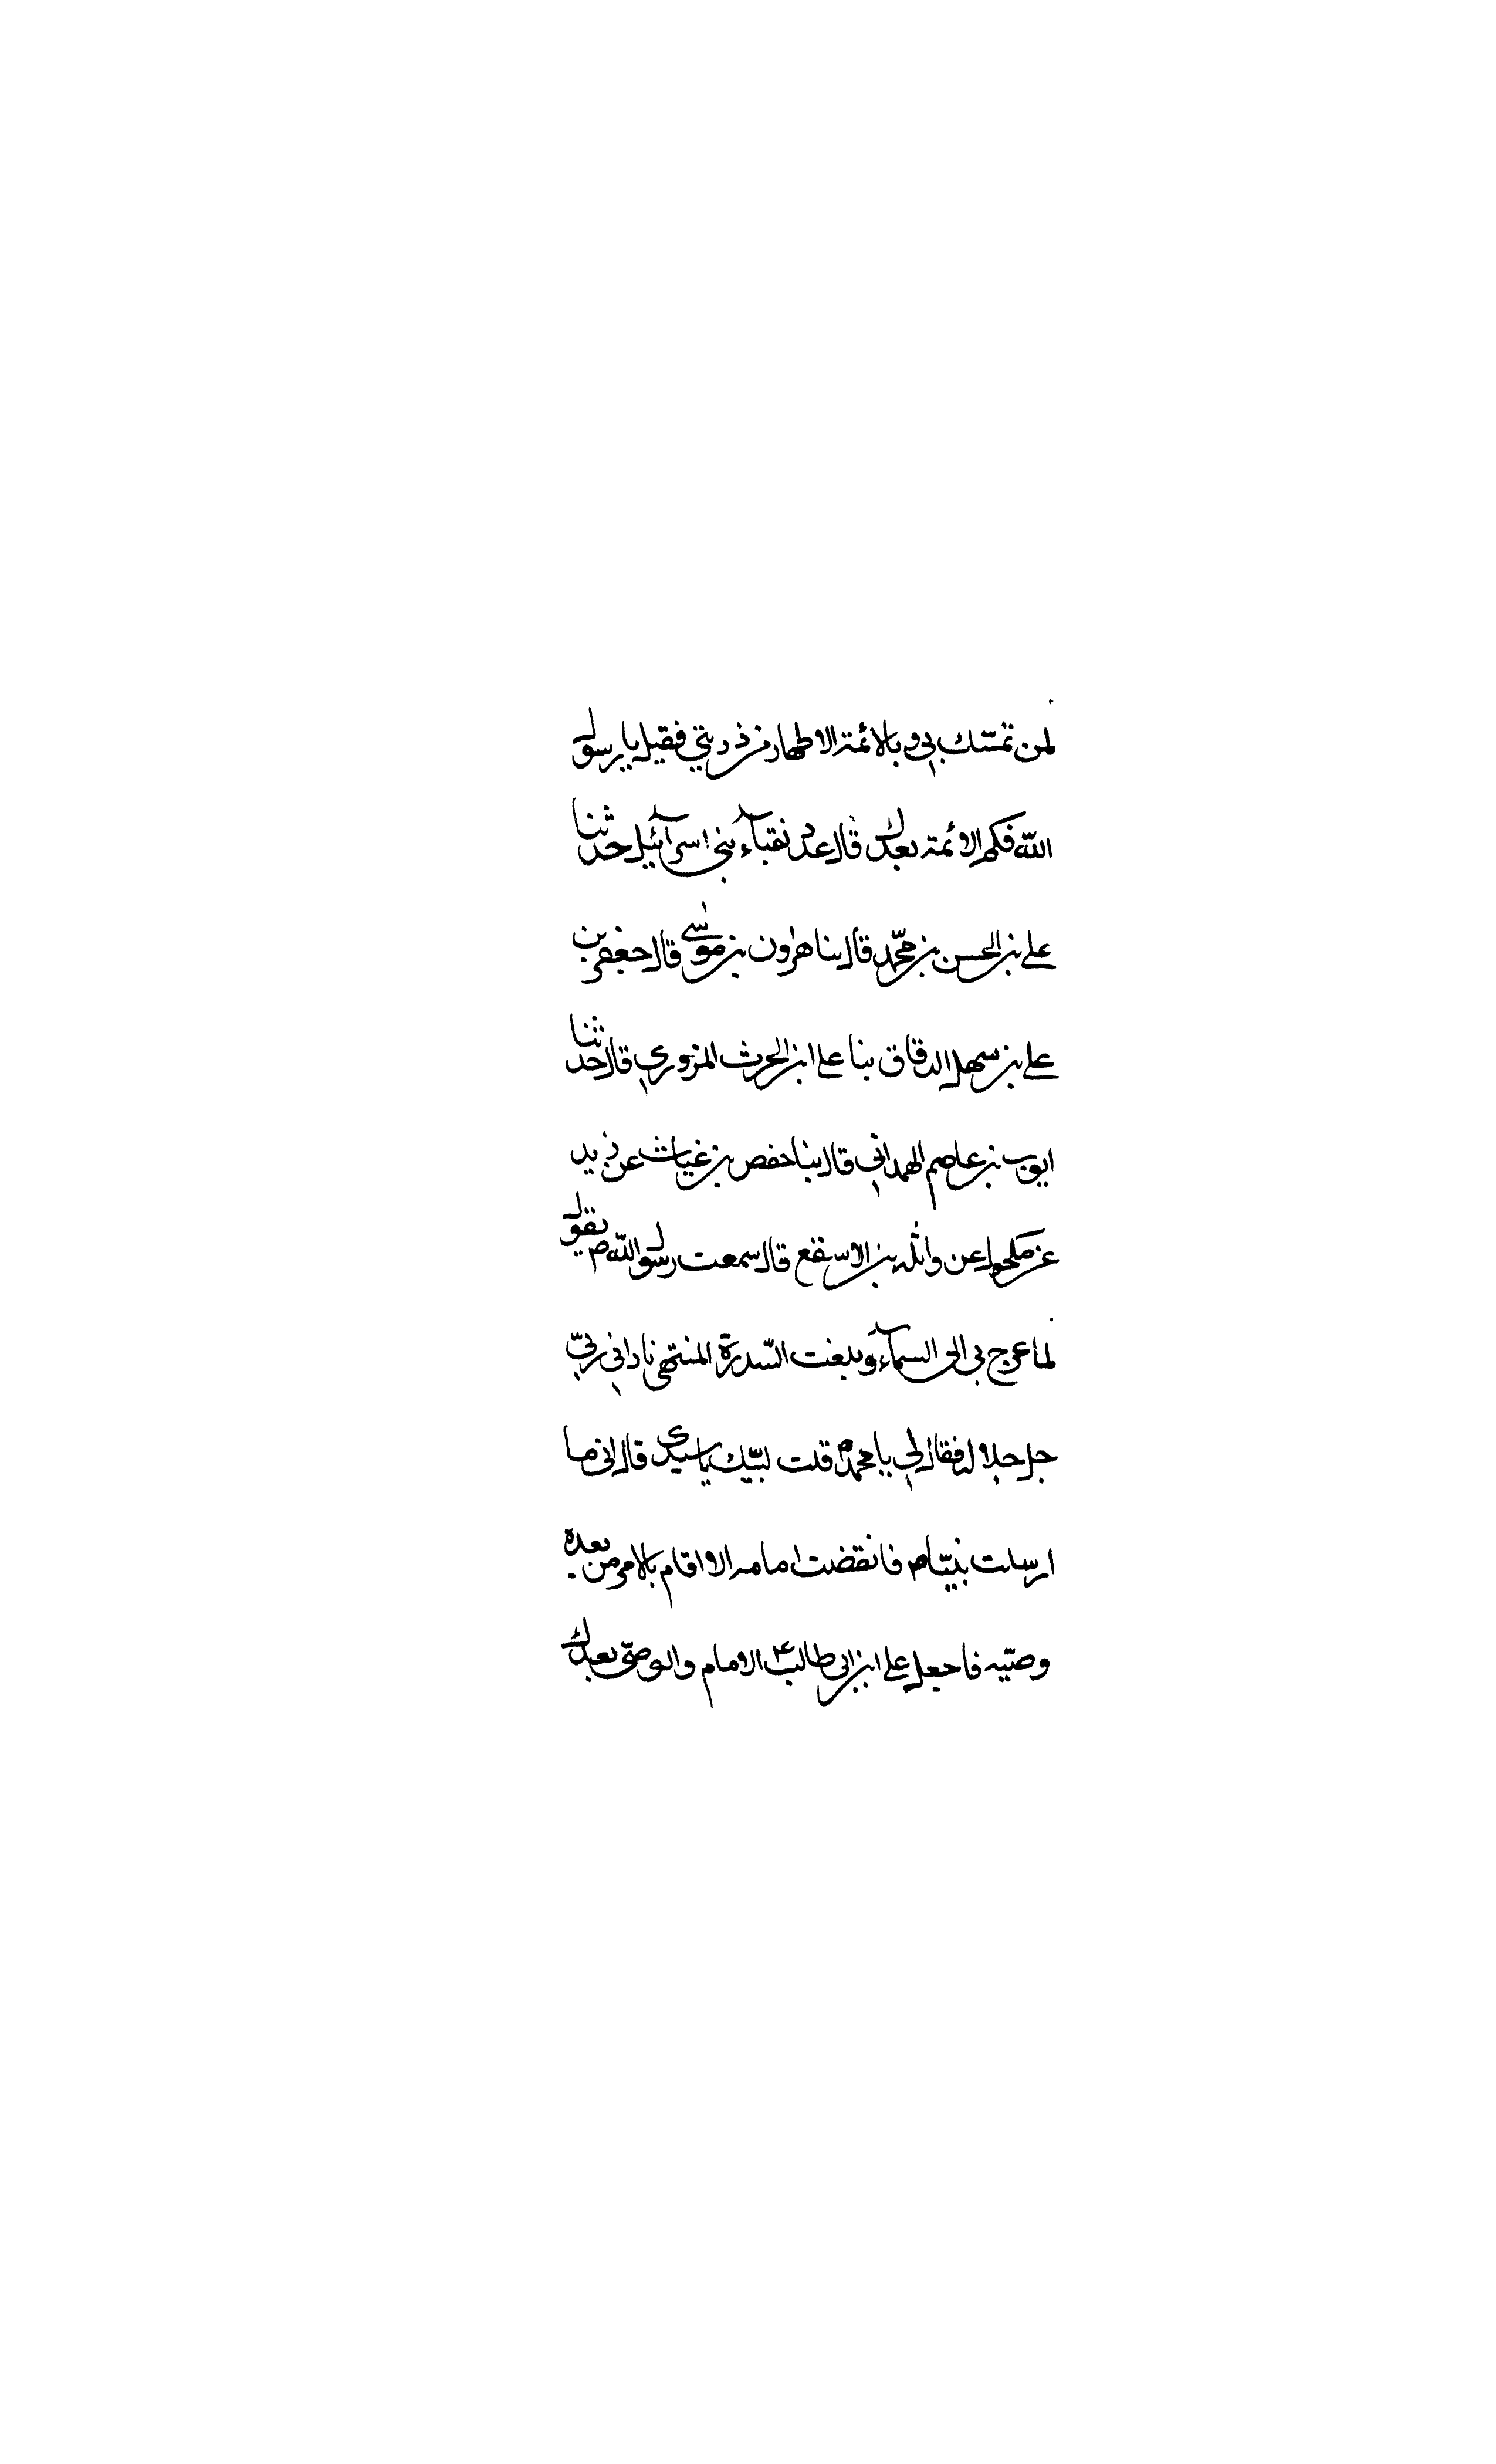 لمن تمسّك بي وبالائمة الاطهار من ذريتي فقيل يا رسول
اللّه فكم الائمة بعدك قال عدد نقبآء بني اسرآئيل حدثنا
علي بن الحسن بن محمّد قال بنا هرون بن موسى قال جعفر بن
علي بن سهل الدقاق بنا علي ابن الحرث المزوري قال حدثنا
ايوب بن عاصم الهمداني قال بنا حفص بن غياث عن زيد
عن مكحول عن واثلة بن الاسقع قال سمعت رسول اللّه ص يقول
لما عرج بي الى السمآء وبلغت السّدرة المنتهى ناداني ربّي
جل جلاله فقال لي يا محمد ص قلت لبيّك يا سيدي قال اني ما
ارسلت نبيّا فانقضت ايامه الا اقام بالامر من بعده
وصيّه فاجعل علي ابن ابي طالب ع الامام والوصيّ بعدك